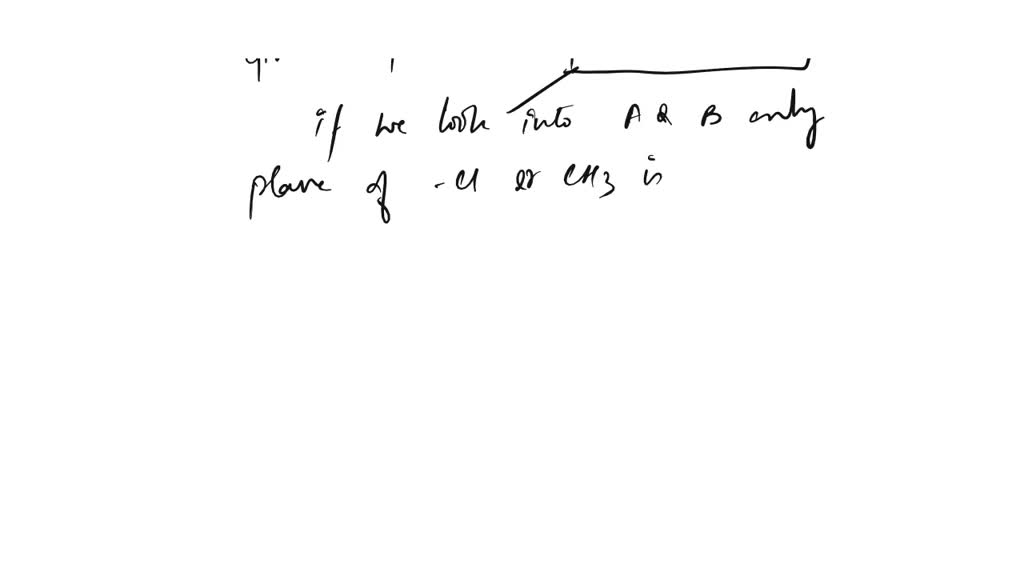 if we look into A & B only
plane of -Cl or CH3 is